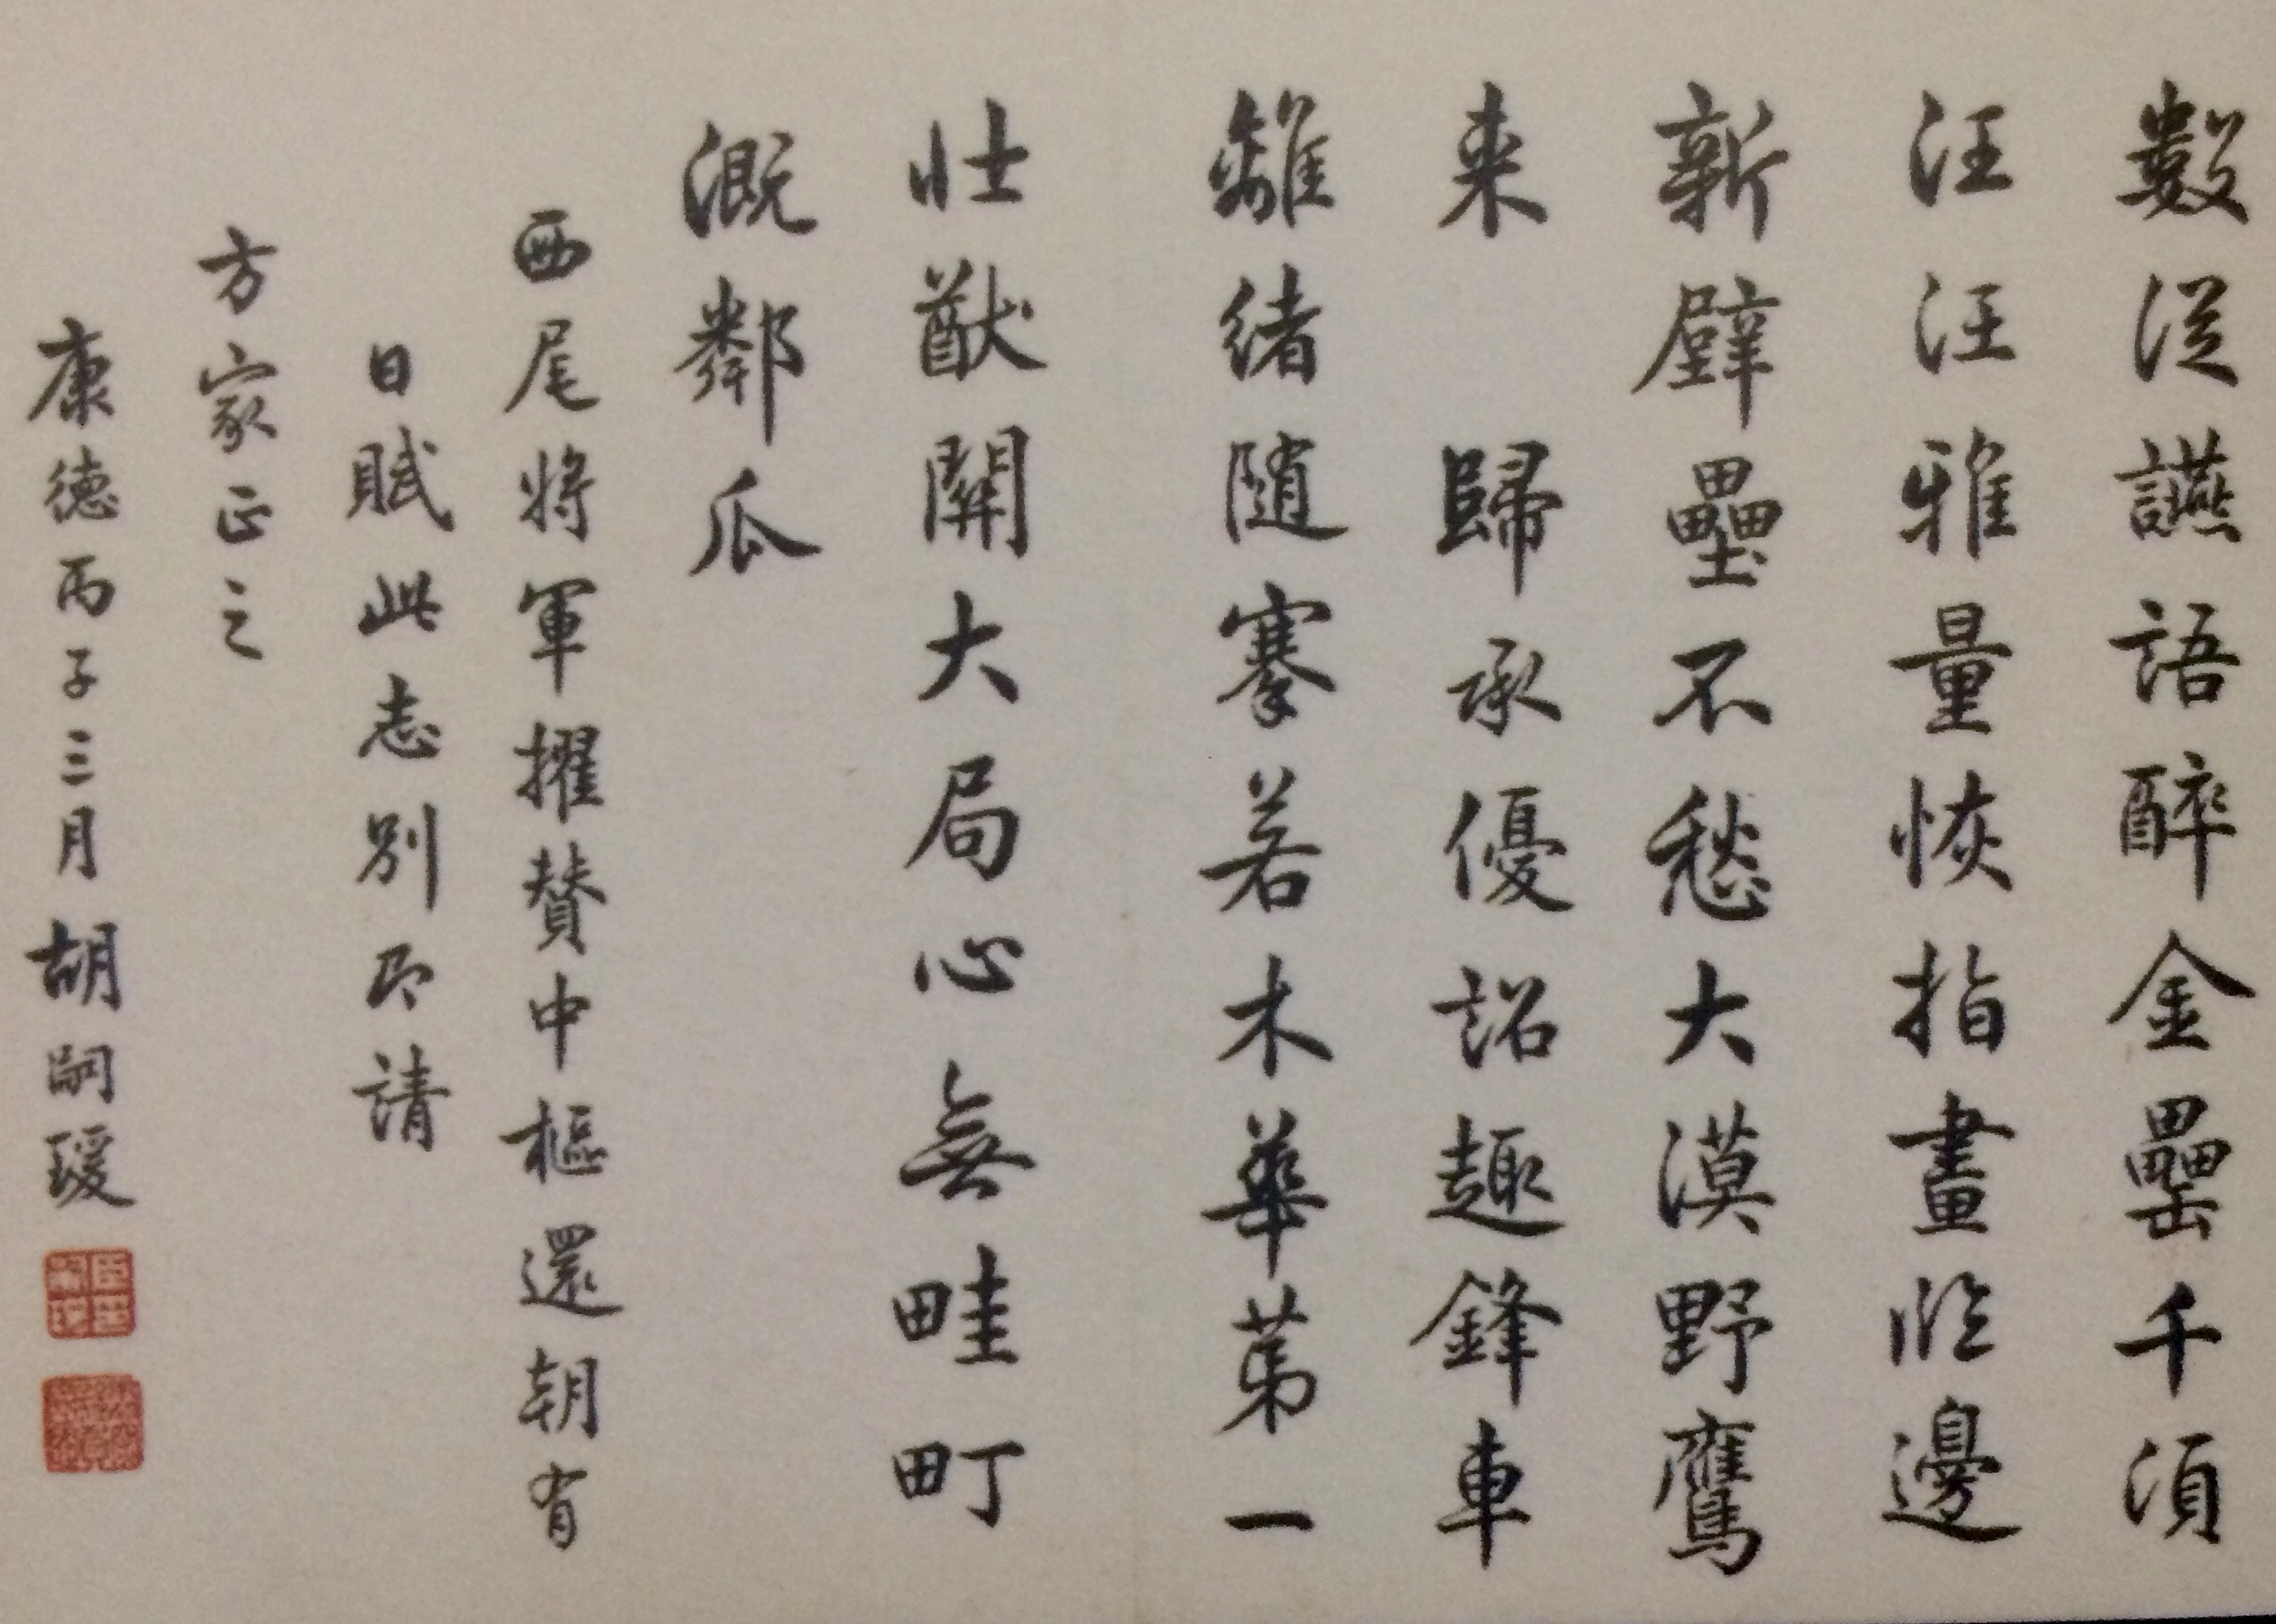 數從讌語醉金罍千湏
汪汪雅量恢指畫臨邊
新壁壘不愁大漠野鷹
来 歸承優詔趣鋒車
離緒随搴若木華苐一
壮猷開大局心無畦町
溉鄰瓜
西尾将軍擢贊中樞還朝有
日賦此志別即請
方家正之
康徳丙子三月胡嗣瑗